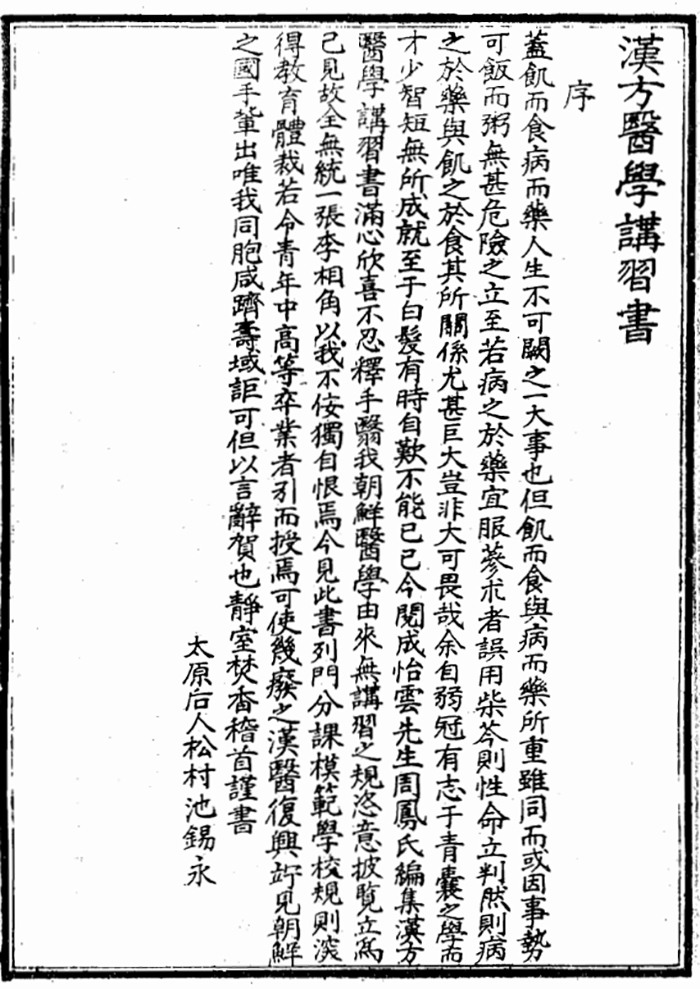 漢方醫學講習書
序
蓋飢而食病而藥人生不可闕之一大事也但飢而食與病而藥所重雖同而或因事勢
可飯而粥無甚危險之立至若病之於藥宜服蔘朮者誤用柴芩則性命立判然則病
之於藥與飢之於食其所關係尤甚巨大豈非大可畏哉余自弱冠有志于青囊之學而
才少智短無所成就至于白髮有時自歎不能已已今閱成怡雲先生周鳳氏編集漢方
醫學講習書滿心欣喜不忍釋手翳我朝鮮醫學由來無講習之規恣意披覽立爲
己見故全無統一張李相角以我不侫獨自恨焉今見此書列門分課模範學校規則深
得教育體裁若令青年中高等卒業者引而授焉可使幾廢之漢醫復興竚見朝鮮
之國手輩出唯我同胞咸躋壽域詎可但以言辭賀也靜室焚香稽首謹書
太原后人松村池錫永